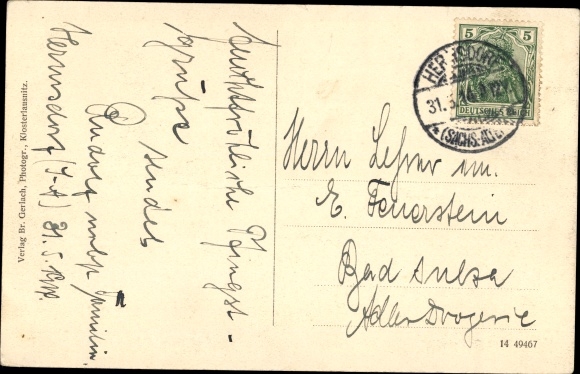 Recht fröhliche Pfingst-
grüße
sendet
Rudolf nebst Familie.
Hermsdorf (S-A) 31.5.
Verlag Br. Gerlach, Photogr., Klosterlausnitz.
5 5
DEUTSCHES REICH
HERMSDORF
31.5.
(SACHS.-ALT.)
Herrn Lehrer em.
E. Feuerstein
Bad Sulza
Adler Drogerie
14 49467